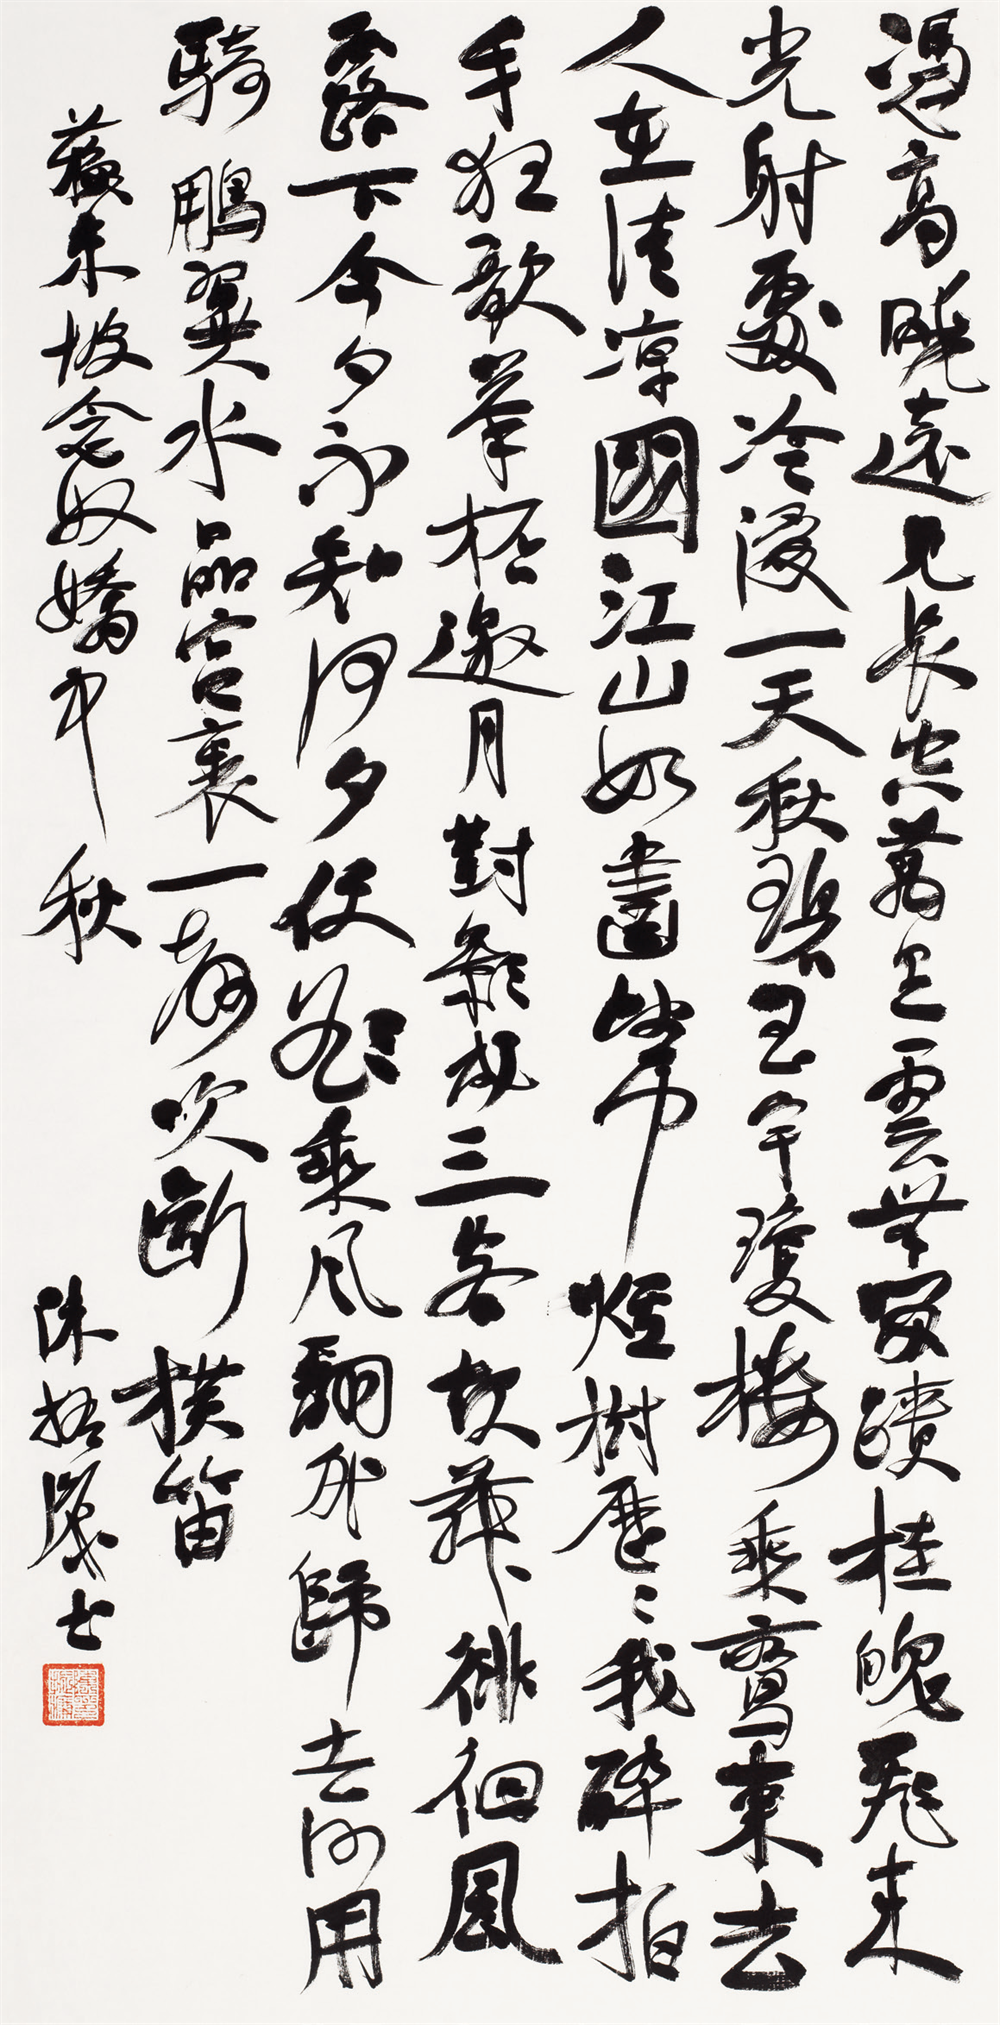 憑高眺遠見長空萬里雲無留蹟桂魄飛來
光射處冷浸一天秋碧玉宇瓊樓乘鸞來去
人在清凉國江山如畫望中烟樹歷〻我醉拍
手狂歌舉杯邀月對影成三客起舞徘徊風
露下今夕不知何夕便欲乘風翻然歸去何用
騎鵬翼水晶宮裏一聲吹斷橫笛
蘇東坡念奴嬌中秋
陳振濂書